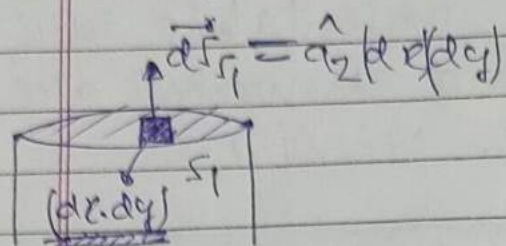 dS⃗_S₁ = â_z (dx)(dy)
S₁
(dx.dy)